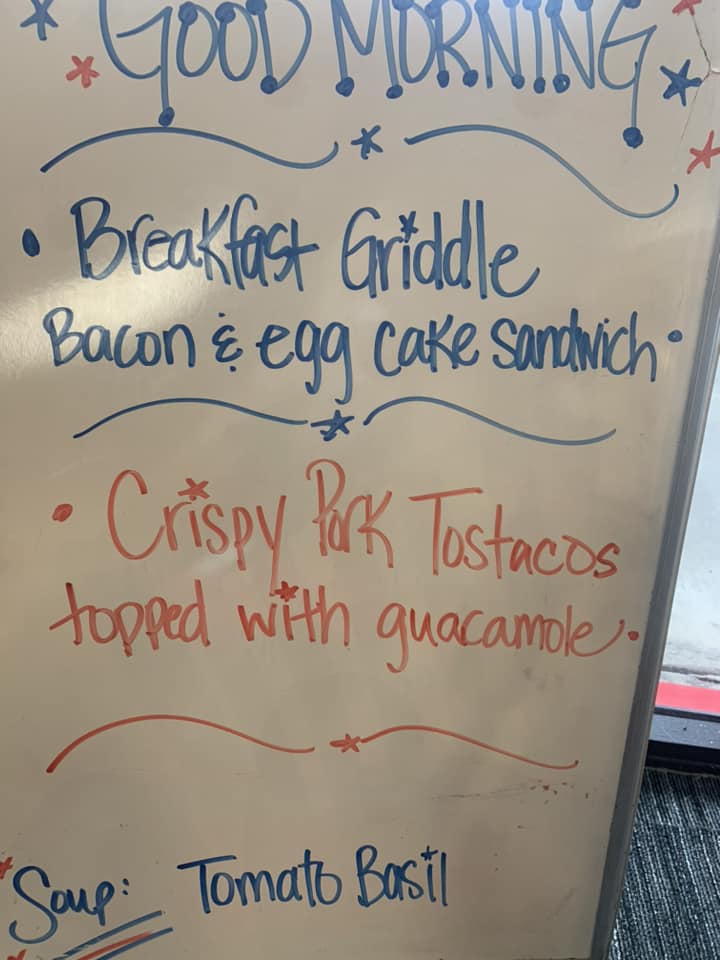 GOOD MORNING
• Breakfast Griddle
Bacon & egg cake sandwich •
• Crispy Pork Tostacos
topped with guacamole •
Soup: Tomato Basil